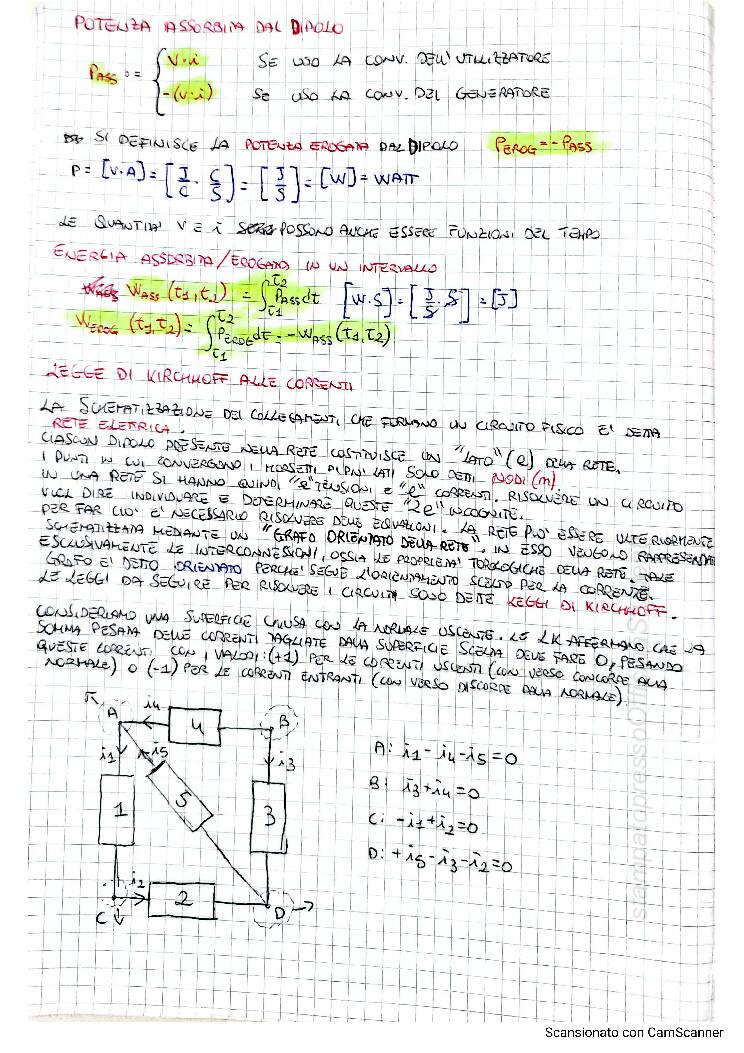 POTENZA ASSORBITA DAL DIPOLO
PASS := { V·i SE USO LA CONV. DELL'UTILIZZATORE
-(V·i) SE USO LA CONV. DEL GENERATORE
SI DEFINISCE LA POTENZA EROGATA DAL DIPOLO PEROG = -PASS
P = [V·A] = [J/C · C/S] = [J/S] = [W] = WATT
LE QUANTITA' V E i POSSONO ANCHE ESSERE FUNZIONI DEL TEMPO
ENERGIA ASSORBITA/EROGATA IN UN INTERVALLO
WASS (t1,t2) = ∫t1t2 PASS dt [W·S] = [J/S · S] = [J]
WEROG (t1,t2) = ∫t1t2 PEROG dt = -WASS (t1,t2)
LEGGE DI KIRCHHOFF ALLE CORRENTI
LA SCHEMATIZZAZIONE DEI COLLEGAMENTI CHE FORMANO UN CIRCUITO FISICO E' DETTA
RETE ELETTRICA.
CIASCUN DIPOLO PRESENTE NELLA RETE COSTITUISCE UN "LATO" (e) DELLA RETE.
I PUNTI IN CUI CONVERGONO I MORSETTI DI PIÙ LATI SONO DETTI NODI (m).
IN UNA RETE SI HANNO QUINDI "e" TENSIONI E "e" CORRENTI. RISOLVERE UN CIRCUITO
VUOL DIRE INDIVIDUARE E DETERMINARE QUESTE "2e" INCOGNITE.
PER FAR CIO' E' NECESSARIO RISOLVERE DELLE EQUAZIONI. LA RETE PUO' ESSERE ULTERIORMENTE
SCHEMATIZZATA MEDIANTE UN "GRAFO ORIENTATO DELLA RETE". IN ESSO VENGONO RAPPRESENTATE
ESCLUSIVAMENTE LE INTERCONNESSIONI, OSSIA LE PROPRIETA' TOPOLOGICHE DELLA RETE. TALE
GRAFO E' DETTO ORIENTATO PERCHE' SEGUE L'ORIENTAMENTO SCELTO PER LA CORRENTE.
LE LEGGI DA SEGUIRE PER RISOLVERE I CIRCUITI SONO DETTE LEGGI DI KIRCHHOFF.
CONSIDERIAMO UNA SUPERFICIE CHIUSA CON LA NORMALE USCENTE. LE LK AFFERMANO CHE LA
SOMMA PESATA DELLE CORRENTI TAGLIATE DALLA SUPERFICIE SCELTA DEVE FARE 0, PESANDO
QUESTE CORRENTI CON I VALORI: (+1) PER LE CORRENTI USCENTI (CON VERSO CONCORDE ALLA
NORMALE) O (-1) PER LE CORRENTI ENTRANTI (CON VERSO DISCORDE DALLA NORMALE)
A i4 4 B
i1 i5 i3
1 5 3
i2 2
C D
A: i1 - i4 - i5 = 0
B: i3 + i4 = 0
C: -i1 + i2 = 0
D: + i5 - i3 - i2 = 0
Scansionato con CamScanner